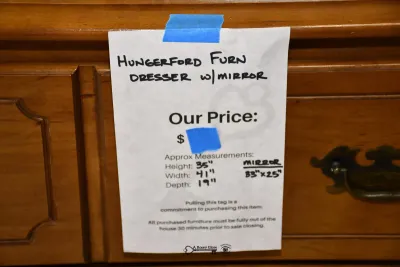 HUNGERFORD FURN
DRESSER W/MIRROR
Our Price:
$
Approx Measurements:
Height: 35" MIRROR
Width: 41" 33"x25"
Depth: 19"
Pulling this tag is a
commitment to purchasing this item.
All purchased furniture must be fully out of the
house 30 minutes prior to sale closing.